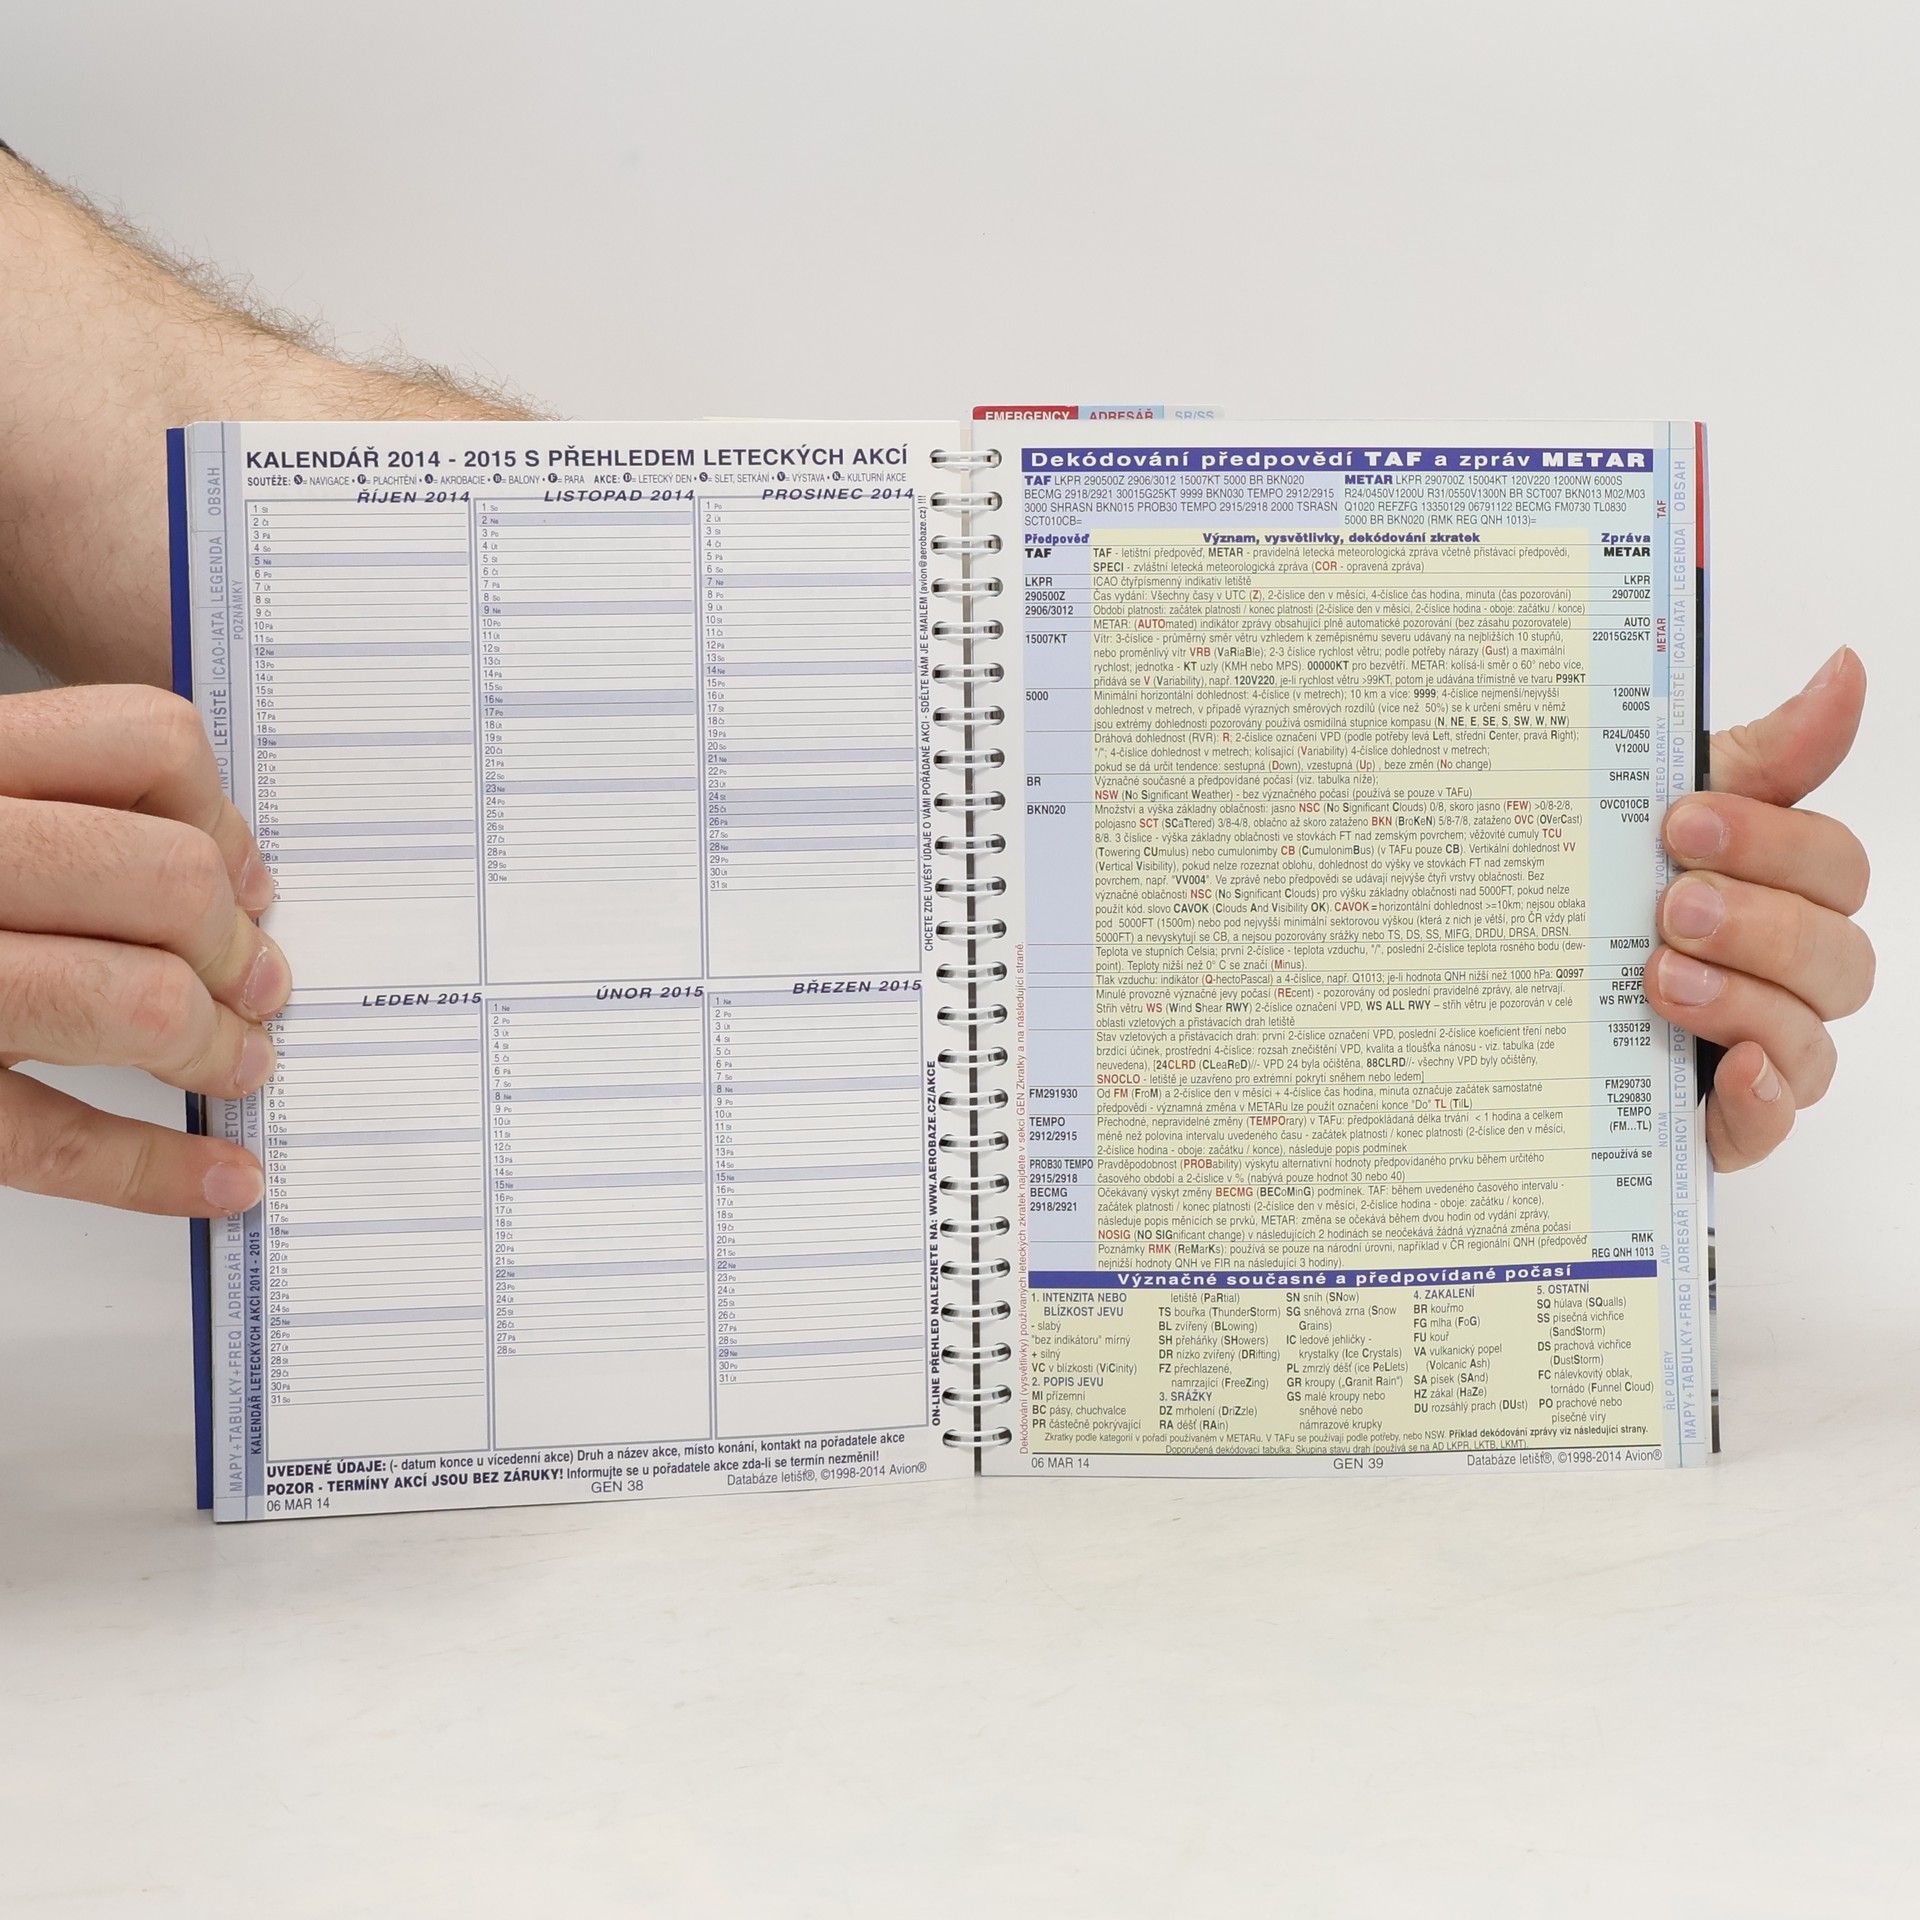 KALENDÁŘ 2014 - 2015 S PŘEHLEDEM LETECKÝCH AKCÍ
SOUTĚŽE: N= NAVIGACE • P= PLACHTĚNÍ • A= AKROBACIE • B= BALONY • P= PARA AKCE: D= LETECKÝ DEN • S= SLET, SETKÁNÍ • V= VÝSTAVA • K= KULTURNÍ AKCE
ŘÍJEN 2014
LISTOPAD 2014
PROSINEC 2014
LEDEN 2015
ÚNOR 2015
BŘEZEN 2015
UVEDENÉ ÚDAJE: (- datum konce u vícedenní akce) Druh a název akce, místo konání, kontakt na pořadatele akce
POZOR - TERMÍNY AKCÍ JSOU BEZ ZÁRUKY! Informujte se u pořadatele akce zda-li se termín nezměnil!
06 MAR 14
GEN 38
Databáze letišť®, ©1998-2014 Avion®
CHCETE ZDE UVÉST ÚDAJE O VÁMI POŘÁDANÉ AKCI - SDĚLTE NÁM JE E-MAILEM (avion@aerobaze.cz) !!!
ON-LINE PŘEHLED NALEZNETE NA: WWW.AEROBAZE.CZ/AKCE
KALENDÁŘ LETECKÝCH AKCÍ 2014 - 2015
MAPY+TABULKY+FREQ ADRESÁŘ
INFO LETIŠTĚ ICAO-IATA LEGENDA OBSAH
POZNÁMKY
EMERGENCY ADRESÁŘ SR/SS
Dekódování předpovědí TAF a zpráv METAR
TAF LKPR 290500Z 2906/3012 15007KT 5000 BR BKN020
BECMG 2918/2921 30015G25KT 9999 BKN030 TEMPO 2912/2915
3000 SHRASN BKN015 PROB30 TEMPO 2915/2918 2000 TSRASN
SCT010CB=
METAR LKPR 290700Z 15004KT 120V220 1200NW 6000S
R24/0450V1200U R31/0550V1300N BR SCT007 BKN013 M02/M03
Q1020 REFZFG 13350129 06791122 BECMG FM0730 TL0830
5000 BR BKN020 (RMK REG QNH 1013)=
Předpověď Význam, vysvětlivky, dekódování zkratek Zpráva
TAF TAF - letištní předpověď, METAR - pravidelná letecká meteorologická zpráva včetně přistávací předpovědi, METAR
SPECI - zvláštní letecká meteorologická zpráva (COR - opravená zpráva)
LKPR ICAO čtyřpísmenný indikativ letiště LKPR
290500Z Čas vydání: Všechny časy v UTC (Z), 2-číslice den v měsíci, 4-číslice čas hodina, minuta (čas pozorování) 290700Z
2906/3012 Období platnosti: začátek platnosti / konec platnosti (2-číslice den v měsíci, 2-číslice hodina - oboje: začátku / konce)
METAR: (AUTOmated) indikátor zprávy obsahující plně automatické pozorování (bez zásahu pozorovatele) AUTO
15007KT Vítr: 3-číslice - průměrný směr větru vzhledem k zeměpisnému severu udávaný na nejbližších 10 stupňů, 22015G25KT
nebo proměnlivý vítr VRB (VaRiaBle); 2-3 číslice rychlost větru; podle potřeby nárazy (Gust) a maximální
rychlost; jednotka - KT uzly (KMH nebo MPS). 00000KT pro bezvětří. METAR: kolísá-li směr o 60° nebo více,
přidává se V (Variability), např. 120V220, je-li rychlost větru >99KT, potom je udávána třímístně ve tvaru P99KT
5000 Minimální horizontální dohlednost: 4-číslice (v metrech); 10 km a více: 9999; 4-číslice nejmenší/nejvyšší 1200NW
dohlednost v metrech, v případě výrazných směrových rozdílů (více než 50%) se k určení směru v němž 6000S
jsou extrémy dohlednosti pozorovány používá osmidílná stupnice kompasu (N, NE, E, SE, S, SW, W, NW)
Dráhová dohlednost (RVR): R; 2-číslice označení VPD (podle potřeby levá Left, střední Center, pravá Right); R24L/0450
"/"; 4-číslice dohlednost v metrech; kolísající (Variability) 4-číslice dohlednost v metrech; V1200U
pokud se dá určit tendence: sestupná (Down), vzestupná (Up) , beze změn (No change)
BR Význačné současné a předpovídané počasí (viz. tabulka níže); SHRASN
NSW (No Significant Weather) - bez význačného počasí (používá se pouze v TAFu)
BKN020 Množství a výška základny oblačnosti: jasno NSC (No Significant Clouds) 0/8, skoro jasno (FEW) >0/8-2/8, OVC010CB
polojasno SCT (SCaTtered) 3/8-4/8, oblačno až skoro zataženo BKN (BroKeN) 5/8-7/8, zataženo OVC (OVerCast) VV004
8/8. 3 číslice - výška základny oblačnosti ve stovkách FT nad zemským povrchem; věžovité cumuly TCU
(Towering CUmulus) nebo cumulonimby CB (CumulonimBus) (v TAFu pouze CB). Vertikální dohlednost VV
(Vertical Visibility), pokud nelze rozeznat oblohu, dohlednost do výšky ve stovkách FT nad zemským
povrchem, např. "VV004". Ve zprávě nebo předpovědi se udávají nejvýše čtyři vrstvy oblačnosti. Bez
význačné oblačnosti NSC (No Significant Clouds) pro výšku základny oblačnosti nad 5000FT, pokud nelze
použít kód. slovo CAVOK (Clouds And Visibility OK). CAVOK = horizontální dohlednost >=10km; nejsou oblaka
pod 5000FT (1500m) nebo pod nejvyšší minimální sektorovou výškou (která z nich je větší, pro ČR vždy platí
5000FT) a nevyskytují se CB, a nejsou pozorovány srážky nebo TS, DS, SS, MIFG, DRDU, DRSA, DRSN.
Teplota ve stupních Celsia; první 2-číslice - teplota vzduchu, "/", poslední 2-číslice teplota rosného bodu (dew- M02/M03
point). Teploty nižší než 0° C se značí (Minus).
Tlak vzduchu: indikátor (Q-hectoPascal) a 4-číslice, např. Q1013; je-li hodnota QNH nižší než 1000 hPa: Q0997 Q102
Minulé provozně význačné jevy počasí (REcent) - pozorovány od poslední pravidelné zprávy, ale netrvají. REFZF
Střih větru WS (Wind Shear RWY) 2-číslice označení VPD, WS ALL RWY – střih větru je pozorován v celé WS RWY24
oblasti vzletových a přistávacích drah letiště
Stav vzletových a přistávacích drah: první 2-číslice označení VPD, poslední 2-číslice koeficient tření nebo 13350129
brzdící účinek, prostřední 4-číslice: rozsah znečištění VPD, kvalita a tloušťka nánosu - viz. tabulka (zde 6791122
neuvedena), [24CLRD (CLeaReD)//- VPD 24 byla očištěna, 88CLRD//- všechny VPD byly očištěny,
SNOCLO - letiště je uzavřeno pro extrémní pokrytí sněhem nebo ledem]
FM291930 Od FM (FroM) a 2-číslice den v měsíci + 4-číslice čas hodina, minuta označuje začátek samostatné FM290730
předpovědi - významná změna v METARu lze použít označení konce "Do" TL (TilL) TL290830
TEMPO Přechodné, nepravidelné změny (TEMPOrary) v TAFu: předpokládaná délka trvání < 1 hodina a celkem TEMPO
2912/2915 méně než polovina intervalu uvedeného času - začátek platnosti / konec platnosti (2-číslice den v měsíci, (FM...TL)
2-číslice hodina - oboje: začátku / konce), následuje popis podmínek
PROB30 TEMPO Pravděpodobnost (PROBability) výskytu alternativní hodnoty předpovídaného prvku během určitého nepoužívá se
2915/2918 časového období a 2-číslice v % (nabývá pouze hodnot 30 nebo 40)
BECMG Očekávaný výskyt změny BECMG (BECoMinG) podmínek. TAF: během uvedeného časového intervalu - BECMG
2918/2921 začátek platnosti / konec platnosti (2-číslice den v měsíci, 2-číslice hodina - oboje: začátku / konce),
následuje popis měnících se prvků, METAR: změna se očekává během dvou hodin od vydání zprávy,
NOSIG (NO SIGnificant change) v následujících 2 hodinách se neočekává žádná význačná změna počasí
Poznámky RMK (ReMarKs): používá se pouze na národní úrovni, například v ČR regionální QNH (předpověď RMK
nejnižší hodnoty QNH ve FIR na následující 3 hodiny). REG QNH 1013
Význačné současné a předpovídané počasí
1. INTENZITA NEBO
BLÍZKOST JEVU
- slabý
"bez indikátoru" mírný
+ silný
VC v blízkosti (ViCinity)
2. POPIS JEVU
MI přízemní
BC pásy, chuchvalce
PR částečně pokrývající
letiště (PaRtial)
TS bouřka (ThunderStorm)
BL zvířený (BLowing)
SH přeháňky (SHowers)
DR nízko zvířený (DRifting)
FZ přechlazené,
namrzající (FreeZing)
3. SRÁŽKY
DZ mrholení (DriZzle)
RA déšť (RAin)
SN sníh (SNow)
SG sněhová zrna (Snow
Grains)
IC ledové jehličky -
krystalky (Ice Crystals)
PL zmrzlý déšť (ice PeLlets)
GR kroupy („Granit Rain“)
GS malé kroupy nebo
sněhové nebo
námrazové krupky
4. ZAKALENÍ
BR kouřmo
FG mlha (FoG)
FU kouř
VA vulkanický popel
(Volcanic Ash)
SA písek (SAnd)
HZ zákal (HaZe)
DU rozsáhlý prach (DUst)
5. OSTATNÍ
SQ húlava (SQualls)
SS písečná vichřice
(SandStorm)
DS prachová vichřice
(DustStorm)
FC nálevkovitý oblak,
tornádo (Funnel Cloud)
PO prachové nebo
písečné víry
Zkratky podle kategorií v pořadí používaném v METARu. V TAFu se používají podle potřeby, nebo NSW. Příklad dekódování zprávy viz následující strany.
Doporučená dekódovací tabulka: Skupina stavu drah (používá se na AD LKPR, LKTB, LKMT).
06 MAR 14
GEN 39
Databáze letišť®, ©1998-2014 Avion®
Dekódování (vysvětlivky) používaných leteckých zkratek najdete v sekci GEN Zkratky a na následující straně.
TAF
METAR
METEO ZKRATKY
NOTAM
AUP
RLP QUERY
MAPY+TABULKY+FREQ ADRESÁŘ EMERGENCY
AD INFO LETIŠTĚ ICAO-IATA LEGENDA OBSAH